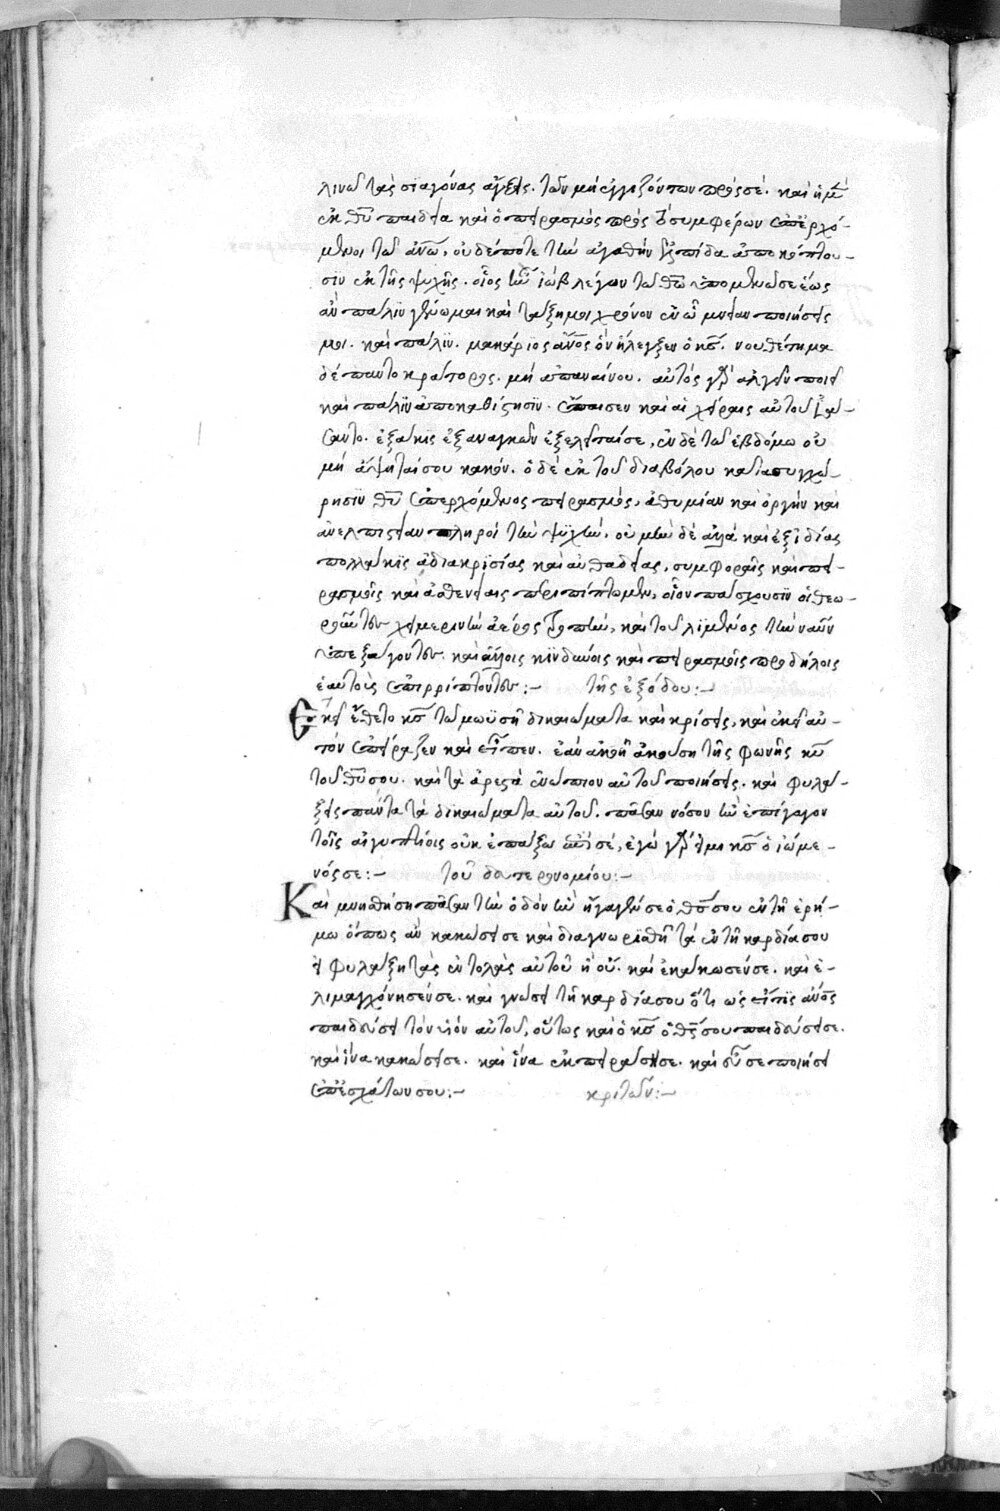 λινῶ τὰς σιαγόνας ἄγξεις. τῶν μὴ ἐγγιζόντων πρὸς σέ. καὶ ἡ μ̀
ἐκ θῦ παιδεία καὶ ὁ πειρασμὸς πρὸς τὸ συμφέρων ἐπερχό-
μενοι τῶ ἀνω, οὐδέποτε τὴν ἀγαθὴν ἐλπίδα ἀποκόπτου-
σιν ἐκ τῆς ψυχῆς. οἷος ἦν ἰὼβ λέγων τῶ θῶ ὑπομενῶ σε ἕως
ἂν πάλιν γένωμαι καὶ τάξῃ μοι χρόνον ἐν ὧ μνείαν ποιήσεις
μου. καὶ πάλιν. μακάριος ἄνος ὃν ἤλεγξεν ὁ κς. νουθέτημα
δὲ παντοκράτορος. μὴ ἀπαναίνου. αὐτὸς γὰρ ἀλγεῖν ποιεῖ
καὶ πάλιν ἀποκαθίστησιν. ἔπαισεν καὶ αἱ χεῖρες αὐτοῦ ἰά-
σαντο. ἑξάκις ἐξ ἀναγκῶν ἐξελεῖται σε, ἐν δὲ τῶ ἑβδόμω οὐ
μὴ ἅψηταί σου κακόν. ὁ δὲ ἐκ τοῦ διαβόλου κατὰ συγχώ-
ρησιν θῦ ἐπερχόμενος πειρασμός, ἀθυμίαν καὶ ὀργὴν καὶ
ἀνελπιστίαν πληροῖ τὴν ψυχήν, οὐ μὴν δὲ ἀλλὰ καὶ ἐξ ἰδίας
πολλάκις ἀδιακρισίας καὶ αὐθαδείας, συμφοραῖς καὶ πει-
ρασμοῖς καὶ ἀσθενείαις περιπίπτομεν, οἷον πάσχουσιν οἱ θεω-
ροῦντες χειμερινὴν ἀέρος τροπήν, καὶ τοῦ λιμένος τὴν ναῦν
ὑπεξάγοντες. καὶ ἄλλοις κινδύνοις καὶ πειρασμοῖς προδήλοις
ἑαυτοὺς ἐπιρρίπτοντες:- τῆς ἐξόδου:-
Ἐκεῖ ἔθετο κς τῶ μωϋσῆ δικαιώματα καὶ κρίσεις, καὶ ἐκεῖ αὐ-
τὸν ἐπείραζεν καὶ εἶπεν. ἐὰν ἀκοῆ ἀκούση τῆς φωνῆς κυ
τοῦ θῦ σου. καὶ τὰ ἀρεστὰ ἐνώπιον αὐτοῦ ποιήσεις. καὶ φυλά-
ξεις πάντα τὰ δικαιώματα αὐτοῦ. πᾶσαν νόσον ἣν ἐπήγαγον
τοῖς αἰγυπτίοις οὐκ ἐπάξω ἐπί σέ, ἐγὼ γὰρ εἰμι κς ὁ ἰώμε-
νός σε:- τοῦ δευτερονομίου:-
Καὶ μνησθήση πᾶσαν τὴν ὁδὸν ἣν ἤγαγέν σε ὁ θς σου ἐν τῆ ἐρή-
μω ὅπως ἂν κακώσει σε καὶ διαγνωρισθῆ τὰ ἐν τῆ καρδία σου
εἰ φυλάξη τὰς ἐντολὰς αὐτοῦ ἢ οὔ. καὶ ἐκάκωσέν σε. καὶ ἐ-
λιμαγχόνησέν σε. καὶ γνώσει τῆ καρδία σου ὅτι ὡς εἴ τις ἄνος
παιδεύσει τὸν υἱὸν αὐτοῦ, οὕτως καὶ ὁ κς ὁ θς σου παιδεύσει σε.
καὶ ἵνα κακώσει σε. καὶ ἵνα ἐκπειράσει σε. καὶ εὖ σε ποιήσει
ἐπ' ἐσχάτων σου:- κριτῶν:-